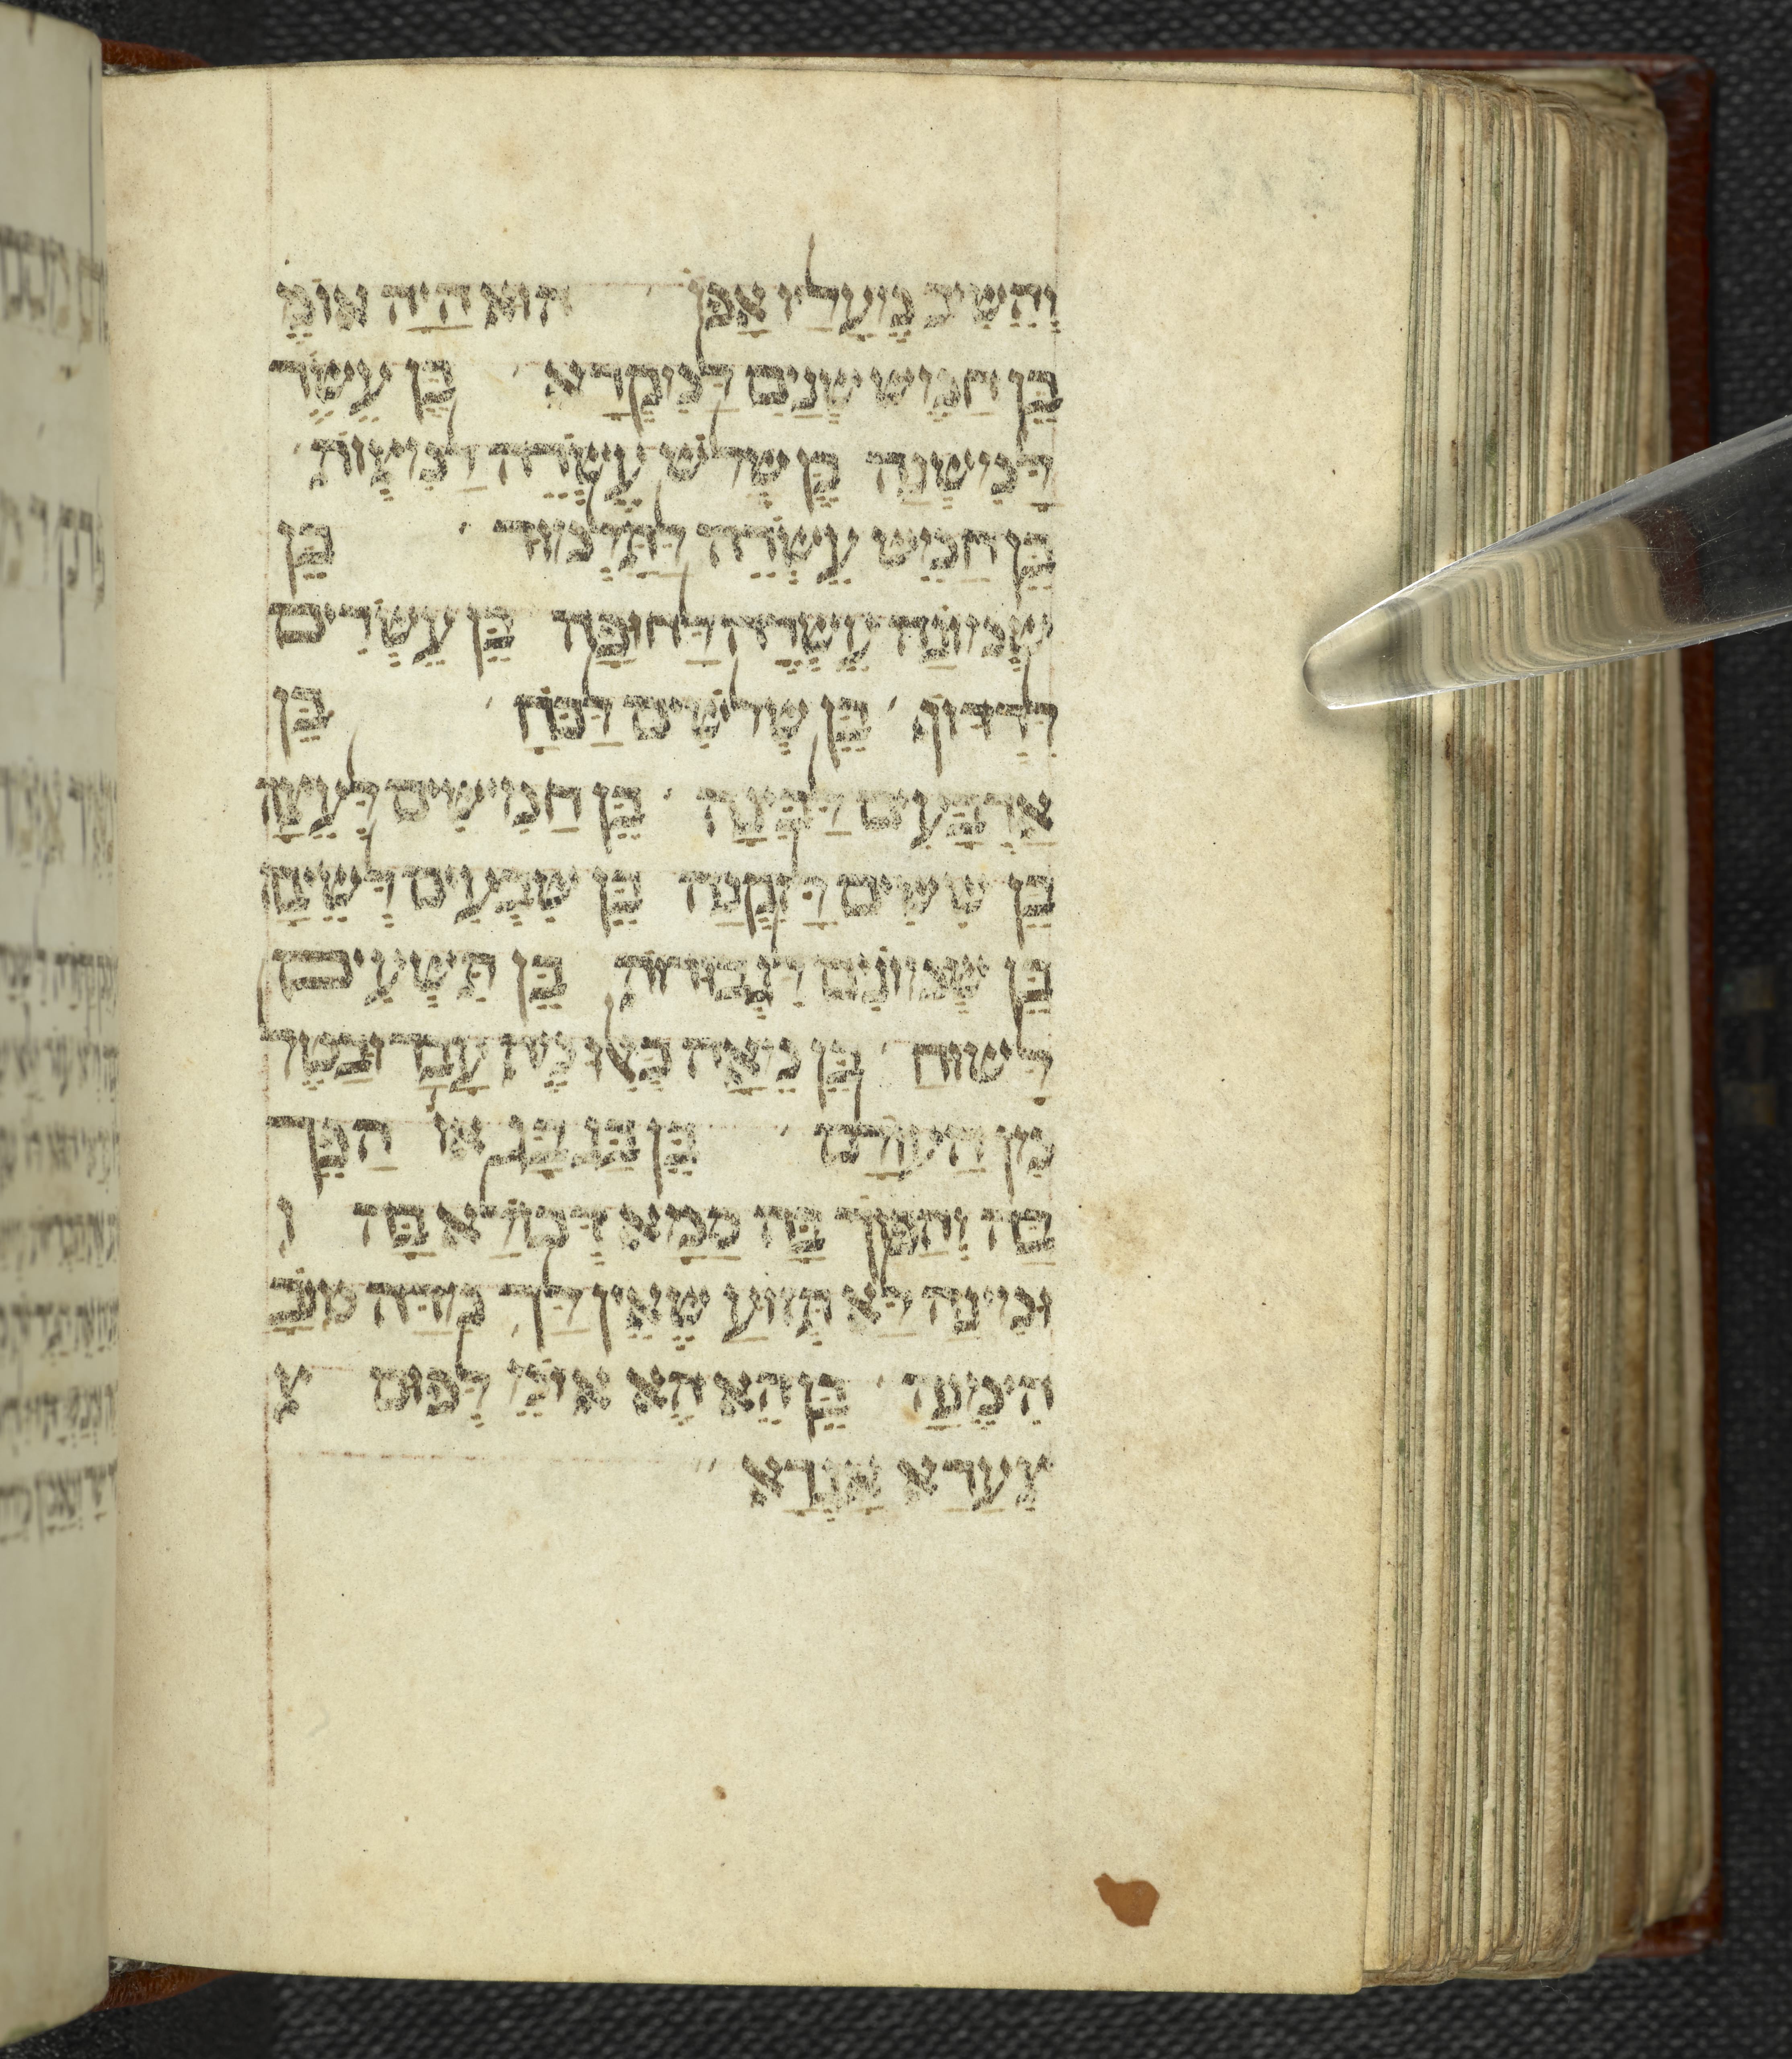 וְהֵשִׁיב מֵעָלַיו אַפּוֹ׳ הוּא הָיָה אוֹמֵ֗
בֶּן חָמֵשׁ שָׁנִים לַמִּקְרָא׳ בֶּן עֶשֶׂר
לַמִּשְׁנָה בֶּן שְׁלֹשׁ עֶשְׂרֵה לַמִּצְוֹת׳
בֶּן חֲמֵשׁ עֶשְׂרֵה לַתַּלְמוּד׳ בֶּן
שְׁמוֹנָה עֶשְׂרֵה לַחוּפָּה בֶּן עֶשְׂרִים
לִרְדּוֹף׳ בֶּן שְׁלֹשִׁים לַכֹּחַ׳ בֶּן
אַרְבָּעִים לַבִּינָה׳ בֶּן חֲמִישִׁים לְעֵצָה
בֶּן שִׁשִּׁים לַזִּקְנָה בֶּן שִׁבְעִים לְשֵׂיבָה
בֶּן שְׁמוֹנִים לַגְּבוּרוֹת בֶּן תִּשְׁעִים
לָשׁוּחַ׳ בֶּן מֵאָה כְּאִלּוּ מֵת וְעָבַר וּבָטֵל
מִן הָעוֹלָם׳ בֶּן בַּג בַּג או֗ הֲפֵךְ
בַּהּ וַהֲפֵךְ בַּהּ דְּכֹלָא בַהּ ו
וּמִינַּהּ לָא תְּזוּעַ שֶׁאֵין לָךְ מִידָּה טוֹבָ֗
הֵימֶנָּה׳ בֶּן הֵא הֵא או֗ לְפוּם צ
צַעֲרָא אַגְרָא׳׳